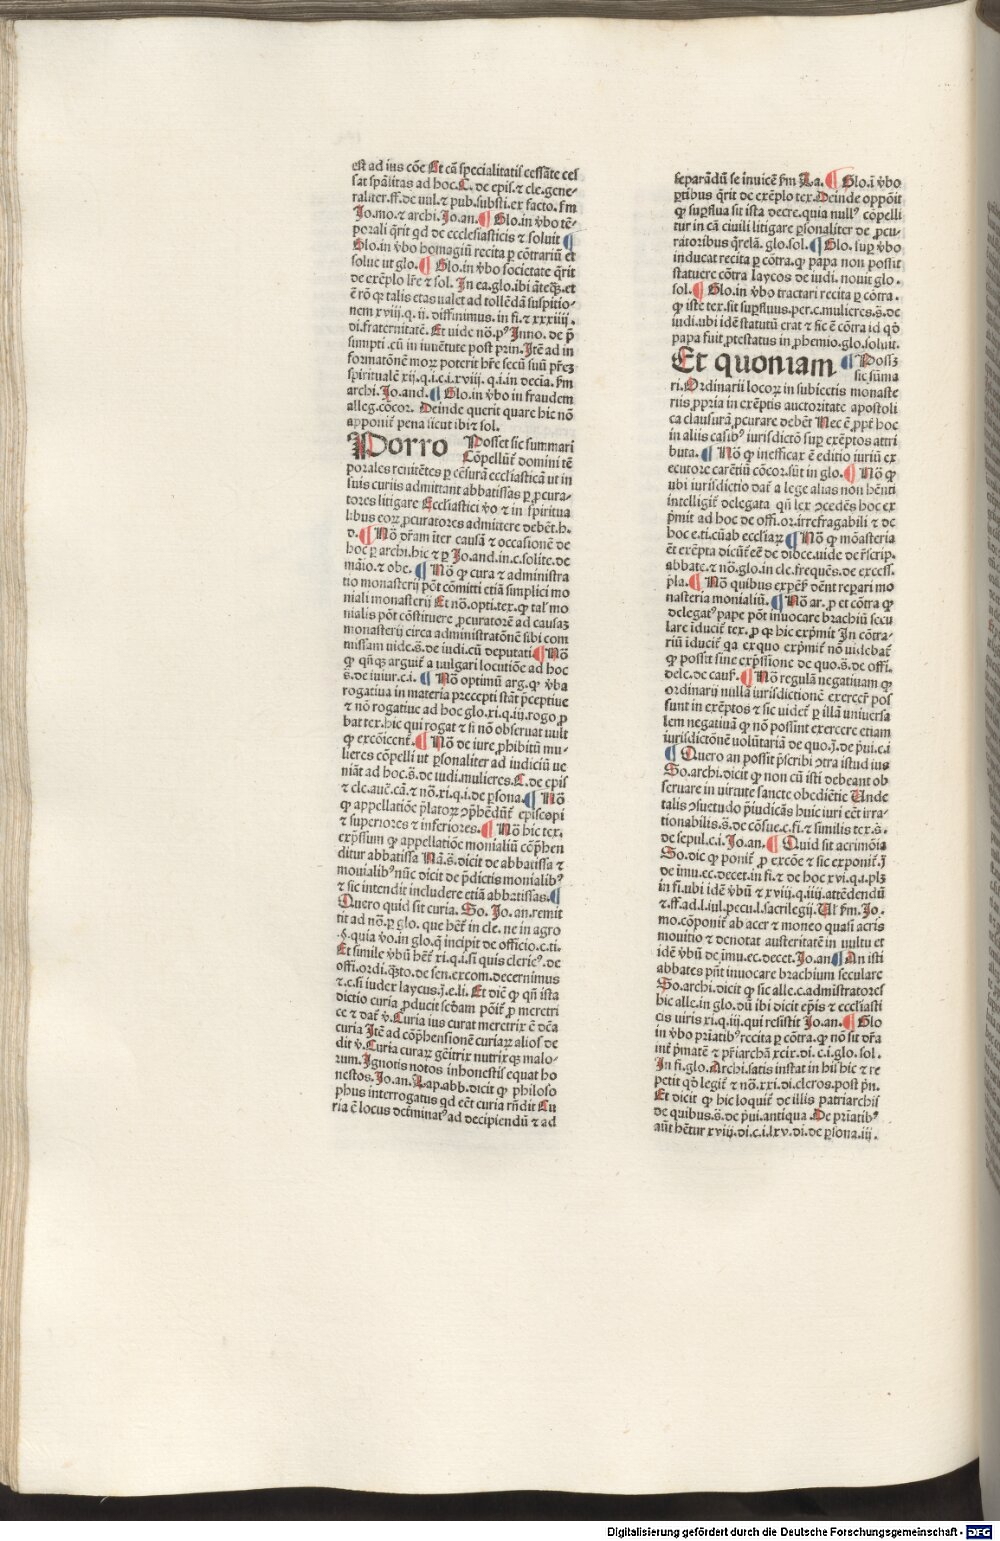 est ad ius cõe Et cã specialitatis cessãte ces
sat spãlitas ad hoc. C. de epis. ⁊ cle. gene-
raliter. ff. de vul. ⁊ pub. substi. ex facto. fm̃
Jo. mo. ⁊ archi. Jo. an. ¶ Glo. in ꝟbo tẽ-
porali q̃rit qd de ecclesiasticis ⁊ soluit ¶
Glo. in ꝟbo homagiũ recita ꝑ cõtrariũ et
solue ut glo. ¶ Glo. in ꝟbo societate q̃rit
de exẽplo lr̃e ⁊ sol. In ea. glo. ibi ãteq̃ȝ. et
ẽ rõ ꝙ talis etas ualet ad tollẽdã suspitio-
nem xviij. q. ij. diffinimus. in fi. ⁊ xxxiiij.
di. fraternitatẽ. Et vide nõ. pꝰ Inno. de p̃
sumpti. cũ in iuuẽtute post prin. Itẽ ad in
formatõnẽ moꝝ poterit hr̃e secũ suũ pr̃eȝ
spiritualẽ xij. q. i. c. i. xviij. q. i. in decia. fm̃
archi. Jo. and. ¶ Glo. in ꝟbo in fraudem
alleg. cõcor. Deinde querit quare hic nõ
apponit̃ pena sicut ibi ⁊ sol.
Porro Posset sic summari
Cõpellũt̃ domini tẽ
porales renitẽtes ꝑ cẽsurã ecclesiasticã ut in
suis curiis admittant abbatissas ꝑ ꝓcura-
tores litigare Ecclesiastici ꝟo ⁊ in spiritua
libus eoꝝ ꝓcuratores admittere debẽt. h.
d. ¶ Nõ dr̃am iter causã ⁊ occasionẽ de
hoc ꝑ archi. hic ⁊ ꝑ Jo. and. in. c. solite. de
maio. ⁊ obe. ¶ Nõ ꝙ cura ⁊ administra
tio monasterij põt cõmitti etiã simplici mo
niali monasterij Et nõ. opti. tex. ꝙ talꝰ mo
nialis põt cõstituere ꝓcuratorẽ ad causaȝ
monasterij circa administratõnẽ sibi com
missam uide. s̃. de iudi. cũ deputati ¶ Nõ
ꝙ qñqȝ arguit̃ a vulgari locutiõe ad hoc
s̃. de iuiur. c. i. ¶ Nõ optimũ arg. ꝙ ꝟba
rogatiua in materia precepti stãt p̃ceptiue
⁊ nõ rogatiue ad hoc glo. xi. q. iij. rogo ꝓ
bat tex. hic qui rogat ⁊ si nõ obseruat uult
ꝙ excõicent̃. ¶ Nõ de iure ꝓhibitũ mu-
lieres cõpelli ut ꝑsonaliter ad iudiciũ ue
niãt ad hoc. s̃. de iudi. mulieres. C. de epis
⁊ cle. auẽ. cã. ⁊ nõ. xi. q. i. de ꝑsona. ¶ Nõ
ꝙ appellatiõe p̃latoꝝ ꝯp̃hẽdũt̃ episcopi
⁊ superiores ⁊ inferiores. ¶ Nõ hic tex.
exp̃ssum ꝙ appellatiõe monialiũ cõp̃hen
ditur abbatissa Nã. s̃. dicit de abbatissa ⁊
monialibꝰ nũc dicit de p̃dictis monialibꝰ
⁊ sic intendit includere etiã abbatissas. ¶
Quero quid sit curia. So. Jo. an. remit
tit ad nõ. ꝑ glo. que hẽt̃ in cle. ne in agro
.§. quia ꝟo. in glo. q̃ incipit de officio. c. ti.
Et simile ꝟbũ hẽt̃ xi. q. i. si quis clericꝰ. de
offi. ordi. q̃sto. de sen. excom. decernimus
⁊. c. si iudex laycus. j̃. e. li. Et dic̃ ꝙ qñ ista
dictio curia ꝓducit scd̃am põit̃ ꝓ meretri
ce ⁊ dat̃ ꝟ. Curia ius curat meretrix ẽ dc̃a
curia Itẽ ad cõp̃hensionẽ curiaꝝ alios de
dit ꝟ. Curia curaꝝ gẽitrix nutrixqꝫ malo-
rum. Ignotis notos inhonestis equat ho
nestos. Jo. an. Lap. abb. dicit ꝙ philoso
phus interrogatus qd eẽt curia rñdit Cu
ria ẽ locus determinatꝰ ad decipiendũ ⁊ ad
separãdũ se inuicẽ fm̃ La. ¶ Glo. ĩ ꝟbo
ꝑtibus q̃rit de exẽplo tex. Deinde oppõit
ꝙ suꝑflua sit ista decre. quia nullꝰ cõpelli
tur in cã ciuili litigare ꝑsonaliter de ꝓcu-
ratoribus q̃relã. glo. sol. ¶ Glo. suꝑ ꝟbo
inducat recita ꝑ cõtra. ꝙ papa non possit
statuere cõtra laycos de iudi. nouit glo.
sol. ¶ Glo. in ꝟbo tractari recita ꝑ cõtra.
ꝙ iste tex. sit suꝑfluus. per. c. mulieres. s̃. de
iudi. ubi idẽ statutũ erat ⁊ sic ẽ cõtra id qd̃
papa fuit ꝓtestatus in ꝓhemio. glo. soluit.
Et quoniam ¶ Possȝ
sic sũma
ri. Ordinarii locoꝝ in subiectis monaste
riis ꝓpria in exẽptis auctoritate apostoli
ca clausurã ꝓcurare debẽt Nec ẽ ꝓpt̃ hoc
in aliis casibꝰ iurisdictõ suꝑ exẽptos attri
buta. ¶ Nõ ꝙ inefficax ẽ editio iuriũ ex
ecutore carẽtiũ cõcor. sũt in glo. ¶ Nõ ꝙ
ubi iurisdictio dat̃ a lege alias non hẽnti
intelligit̃ delegata qñ lex ꝯcedẽs hoc ex
p̃mit ad hoc de offi. or. irrefragabili ⁊ de
hoc e. ti. cũ ab eccliaꝝ ¶ Nõ ꝙ mõasteria
ẽt exẽpta dicũt̃ eẽ de dioce. uide de r̃scrip.
abbate. ⁊ nõ. glo. in cle. frequẽs. de excess.
p̃la. ¶ Nõ quibus expẽs̃ dẽnt repari mo
nasteria monialiũ. ¶ Nõ ar. ꝓ et cõtra ꝙ
delegatꝰ pape põt inuocare brachiũ secu
lare ĩducit̃ tex. ꝓ ꝙ hic exp̃mit In cõtra-
riũ iducit̃ qa ex quo exp̃mit̃ nõ uidebat̃
ꝙ possit sine exp̃ssiõne de quo. s̃. de offi.
dele. de caus̃. ¶ Nõ regulã negatiuam ꝙ
ordinarij nullã iurisdictionẽ exercer̃ pos
sunt in exẽptos ⁊ sic uidet̃ ꝑ illã uniuersa
lem negatiuã ꝙ nõ possint exercere etiam
iurisdictõnẽ uolũtariã de quo. j̃. de p̃ui. c. i
¶ Quero an possit p̃scribi ꝯtra istud ius
So. archi. dicit ꝙ non cũ isti debeant ob
seruare in uirtute sancte obediẽtie Unde
talis ꝯsuetudo p̃iudicãs huic iuri eẽt irra-
tionabilis. s̃. de cõsue. c. fi. ⁊ similis tex. s̃.
de sepul. c. i. Jo. an. ¶ Quid sit acrimõia
So. dic ꝙ ponit̃ ꝓ excõe ⁊ sic exponit̃. j̃
de imu. ec. decet. in fi. ⁊ de hoc xvi. q. i. plȝ
in fi. ubi idẽ ꝟbũ ⁊ xviij. q. iiij. attẽdendũ
⁊. ff. ad. l. iul. pecu. l. sacrilegij. Ul̃ fm̃. Jo.
mo. cõponit̃ ab acer ⁊ moneo quasi acris
monitio ⁊ denotat austeritatẽ in uultu et
idẽ ꝟbũ de imu. ec. decet. Jo. an ¶ An isti
abbates pñt inuocare brachium seculare
So. archi. dicit ꝙ sic alle. c. admĩstratores
hic alle. in glo. dũ ibi dicit ep̃is ⁊ ecclãsti
cis uiris xi. q. iij. qui resistit Jo. an. ¶ Glo
in ꝟbo pr̃iatibꝰ recita ꝑ cõtra. ꝙ nõ sit dr̃a
int̃ pr̃imatẽ ⁊ pr̃iarchã xcix. di. c. i. glo. sol.
In fi. glo. Archi. satis instat in his hic ⁊ re
petit qd̃ legit̃ ⁊ nõ. xxi. di. cleros. post pñ.
Et dicit ꝙ hic loquit̃ de illis patriarchis
de quibus. s̃. de p̃ui. antiqua. De pr̃iatibꝰ
aũt hẽtur xviij. di. c. i. lxv. di. de ꝑsona. iij.
Digitalisierung gefördert durch die Deutsche Forschungsgemeinschaft - DFG